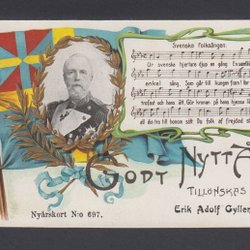 Svenska folksången.
Ur svenska hjertans djup en gång En samfäld
enkel sång, Som går till kungen fram! Var
trofast och hans ätt, Gör kronan på hans hjessa
all din tro till honom sätt Du folk af frejdad st
GODT NYTT Å
TILLÖNSKAS
Erik Adolf Gyller
Nyårskort N:o 697.